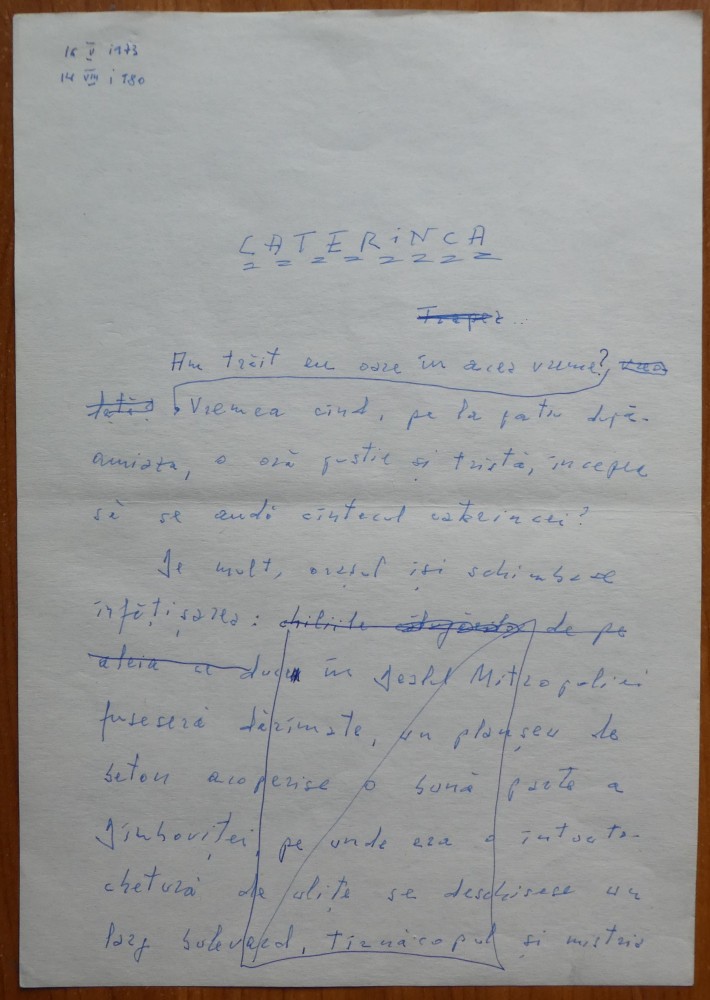 16 V i973
14 VIII i980
CATERiNCA
Trepte..
Am trăit eu oare în acea vreme?
Vremea cînd, pe la patru după-
amiaza, o oră pustie și tristă, începea
să se audă cîntecul caterincei?
De mult, orașul își schimbase
înfățișarea: chiliile de pe
aleia ce duce în Dealul Mitropoliei
fuseseră dărîmate, un planșeu de
beton acoperise o bună parte a
Dîmboviței, pe unde era o întorto-
chetură de ulițe se deschisese un
larg bulevard, tîrnăcopul și mistria